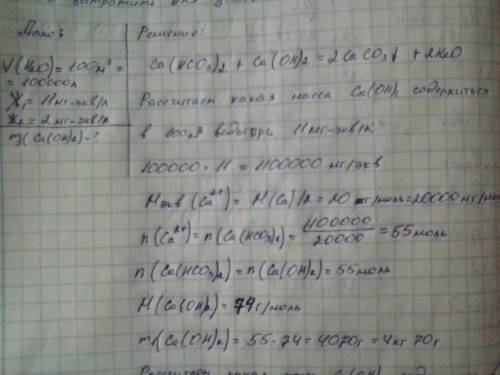 затратить для
Дано:
Решение:
V(H2O) = 100 м³ =
= 100000 л
Ж1 = 11 мг-экв/л
Ж2 = 2 мг-экв/л
m3(Ca(OH)2) - ?
Ca(HCO3)2 + Ca(OH)2 = 2CaCO3↓ + 2H2O
Рассчитаем какая масса Ca(OH)2 содержиться
в 100 м³ воды при 11 мг-экв/л
100000 · 11 = 1100000 мг/экв
Mэкв (Ca²⁺) = M(Ca)/2 = 20 г/моль = 20000 мг/моль
n(Ca²⁺) = n(Ca(HCO3)2) = 1100000/20000 = 55 моль
n(Ca(HCO3)2) = n(Ca(OH)2) = 55 моль
M(Ca(OH)2) = 74 г/моль
m1(Ca(OH)2) = 55 · 74 = 4070 г = 4 кг 70 г
Рассчитаем какая Ca(OH)2